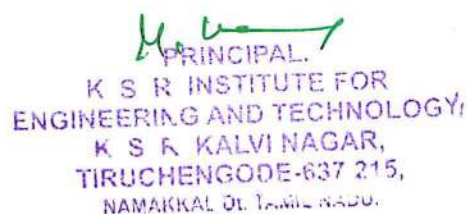 PRINCIPAL.
K S R INSTITUTE FOR
ENGINEERING AND TECHNOLOGY,
K S R KALVI NAGAR,
TIRUCHENGODE-637 215,
NAMAKKAL Dt. TAMIL NADU.